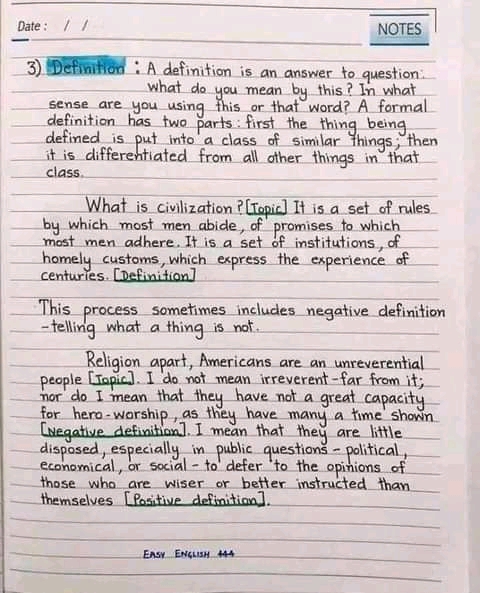 Date : / /
NOTES
3) Definition : A definition is an answer to question:
what do you mean by this? In what
sense are you using this or that word? A formal
definition has two parts: first the thing being
defined is put into a class of similar things; then
it is differentiated from all other things in that
class.
What is civilization? [Topic] It is a set of rules
by which most men abide, of promises to which
most men adhere. It is a set of institutions, of
homely customs, which express the experience of
centuries. [Definition]
This process sometimes includes negative definition
- telling what a thing is not.
Religion apart, Americans are an unreverential
people [Topic]. I do not mean irreverent - far from it;
nor do I mean that they have not a great capacity
for hero-worship, as they have many a time shown
[Negative definition]. I mean that they are little
disposed, especially in public questions - political,
economical, or social - to defer to the opinions of
those who are wiser or better instructed than
themselves [Positive definition].
EASY ENGLISH 444